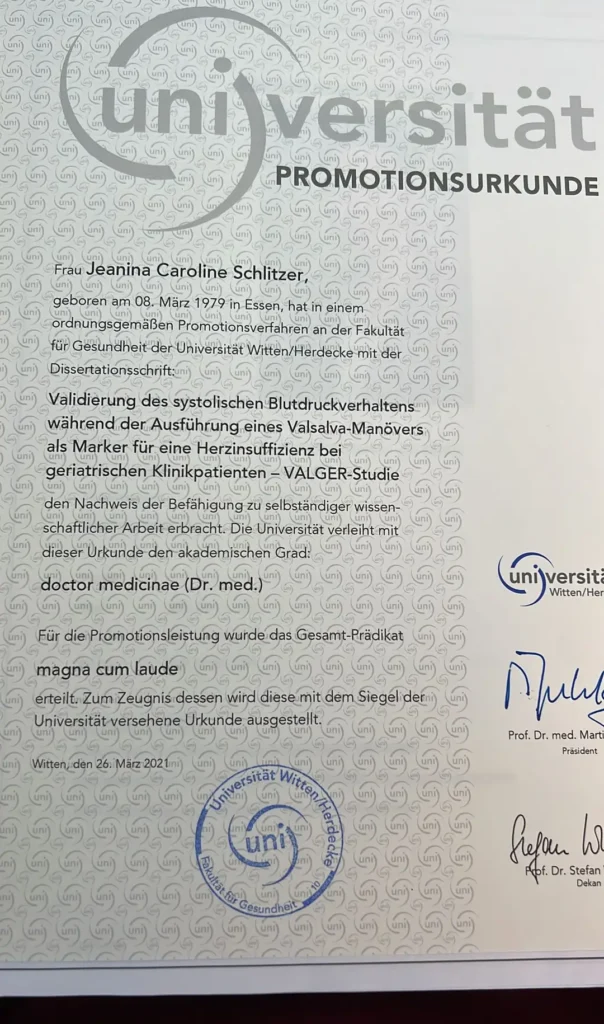 universität
PROMOTIONSURKUNDE
Frau Jeanina Caroline Schlitzer,
geboren am 08. März 1979 in Essen, hat in einem
ordnungsgemäßen Promotionsverfahren an der Fakultät
für Gesundheit der Universität Witten/Herdecke mit der
Dissertationsschrift:
Validierung des systolischen Blutdruckverhaltens
während der Ausführung eines Valsalva-Manövers
als Marker für eine Herzinsuffizienz bei
geriatrischen Klinikpatienten – VALGER-Studie
den Nachweis der Befähigung zu selbständiger wissen-
schaftlicher Arbeit erbracht. Die Universität verleiht mit
dieser Urkunde den akademischen Grad:
doctor medicinae (Dr. med.)
Für die Promotionsleistung wurde das Gesamt-Prädikat
magna cum laude
erteilt. Zum Zeugnis dessen wird diese mit dem Siegel der
Universität versehene Urkunde ausgestellt.
Witten, den 26. März 2021
Universität Witten/Herdecke
uni
Fakultät für Gesundheit
10
universitä
Witten/Her
Prof. Dr. med. Marti
Präsident
Stefan
Prof. Dr. Stefan
Dekan